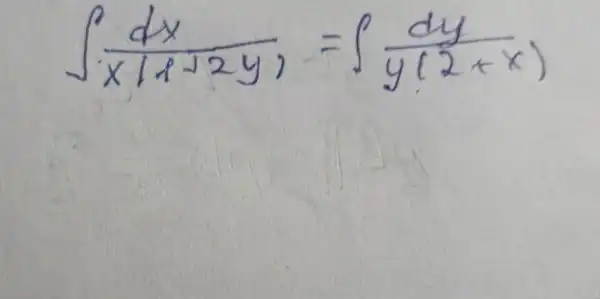 ∫ dx / x(1+2y) = ∫ dy / y(2+x)